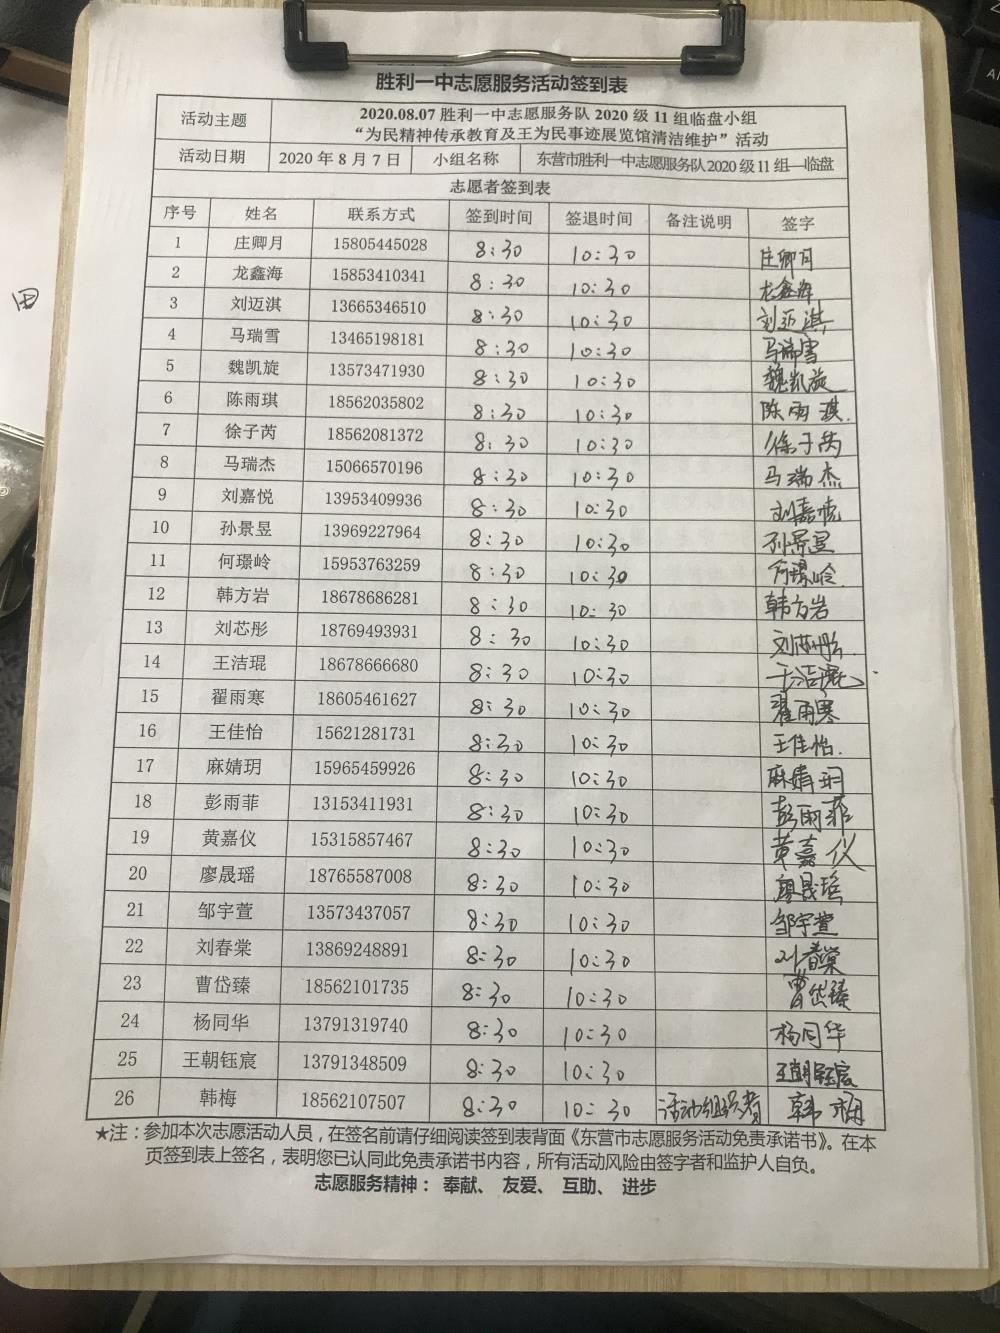 胜利一中志愿服务活动签到表
活动主题 2020.08.07 胜利一中志愿服务队 2020 级 11 组临盘小组
“为民精神传承教育及王为民事迹展览馆清洁维护”活动
活动日期 2020 年 8 月 7 日 小组名称 东营市胜利一中志愿服务队 2020 级 11 组—临盘
志愿者签到表
序号 姓名 联系方式 签到时间 签退时间 备注说明 签字
1 庄卿月 15805445028 8:30 10:30 庄卿月
2 龙鑫海 15853410341 8:30 10:30 龙鑫海
3 刘迈淇 13665346510 8:30 10:30 刘迈淇
4 马瑞雪 13465198181 8:30 10:30 马瑞雪
5 魏凯旋 13573471930 8:30 10:30 魏凯旋
6 陈雨琪 18562035802 8:30 10:30 陈雨琪.
7 徐子芮 18562081372 8:30 10:30 徐子芮
8 马瑞杰 15066570196 8:30 10:30 马瑞杰
9 刘嘉悦 13953409936 8:30 10:30 刘嘉悦
10 孙景昱 13969227964 8:30 10:30 孙景昱
11 何璟岭 15953763259 8:30 10:30 何璟岭
12 韩方岩 18678686281 8:30 10:30 韩方岩
13 刘芯彤 18769493931 8:30 10:30 刘芯彤
14 王洁琨 18678666680 8:30 10:30 王洁琨
15 翟雨寒 18605461627 8:30 10:30 翟雨寒
16 王佳怡 15621281731 8:30 10:30 王佳怡.
17 麻婧玥 15965459926 8:30 10:30 麻婧玥
18 彭雨菲 13153411931 8:30 10:30 彭雨菲
19 黄嘉仪 15315857467 8:30 10:30 黄嘉仪
20 廖晟瑶 18765587008 8:30 10:30 廖晟瑶
21 邹宇萱 13573437057 8:30 10:30 邹宇萱
22 刘春棠 13869248891 8:30 10:30 刘春棠
23 曹岱臻 18562101735 8:30 10:30 曹岱臻
24 杨同华 13791319740 8:30 10:30 杨同华
25 王朝钰宸 13791348509 8:30 10:30 王朝钰宸
26 韩梅 18562107507 8:30 10:30 活动组织者 韩梅
★注：参加本次志愿活动人员，在签名前请仔细阅读签到表背面《东营市志愿服务活动免责承诺书》。在本
页签到表上签名，表明您已认同此免责承诺书内容，所有活动风险由签字者和监护人自负。
志愿服务精神： 奉献、 友爱、 互助、 进步